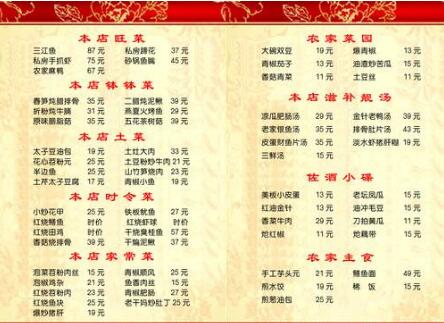 本店旺菜
三江鱼 87 元 私房蹄花 37 元
私房手抓虾 75 元 砂锅鱼嘴 45 元
农家麻鸭 67 元
本店钵钵菜
春笋炖腊排骨 35 元 二腊炖泥鳅 39 元
折粉炖牛腩 31 元 燕夏火烤鱼 29 元
原味腊脂菇 35 元 五花茶树菇 29 元
本店土菜
太子豆油包 19 元 土灶大肉 33 元
花心苕粉元 25 元 土豆粉炒牛肉 21 元
半边鱼 25 元 山竹笋烧肉 23 元
土芹太子豆腐 17 元 青椒小鱼 19 元
本店时令菜
小炒花甲 25 元 铁板鱿鱼 27 元
红烧鳝鱼 时价 红烧虾球 时价
红烧田鸡 时价 干烧臭桂鱼 57 元
香菇烧排骨 39 元 干煸泥鳅 39 元
本店家常菜
泡菜苕粉肉丝 15 元 青椒顺风 25 元
泡椒鸡杂 21 元 鱼香肉丝 15 元
红烧苕粉肉 23 元 青椒肥肠 27 元
红烧鱼块 25 元 老干妈炒肚丁 25 元
爆炒猪肝 19 元
农家菜园
大碗双豆 19 元 爆青椒 13 元
青椒茄子 13 元 油渣炒苦瓜 15 元
香菇青菜 11 元 土豆丝 11 元
本店滋补靓汤
凉瓜肥肠汤 29 元 金针老鸭汤 39 元
老家银鱼汤 35 元 排骨肚片汤 43 元
皮蛋财鱼片汤 35 元 淡水虾猪肝糊 19 元
三鲜汤 15 元
佐酒小碟
美板小皮蛋 13 元 老坛凤瓜 15 元
红油金针 13 元 油冲毛豆 15 元
香菜牛肉 29 元 刀拍黄瓜 11 元
炝红椒 11 元 炝藕带 15 元
农家主食
手工芋头元 21 元 鳝鱼面 49 元
煎水饺 19 元 稀饭 15 元
煎葱油包 25 元